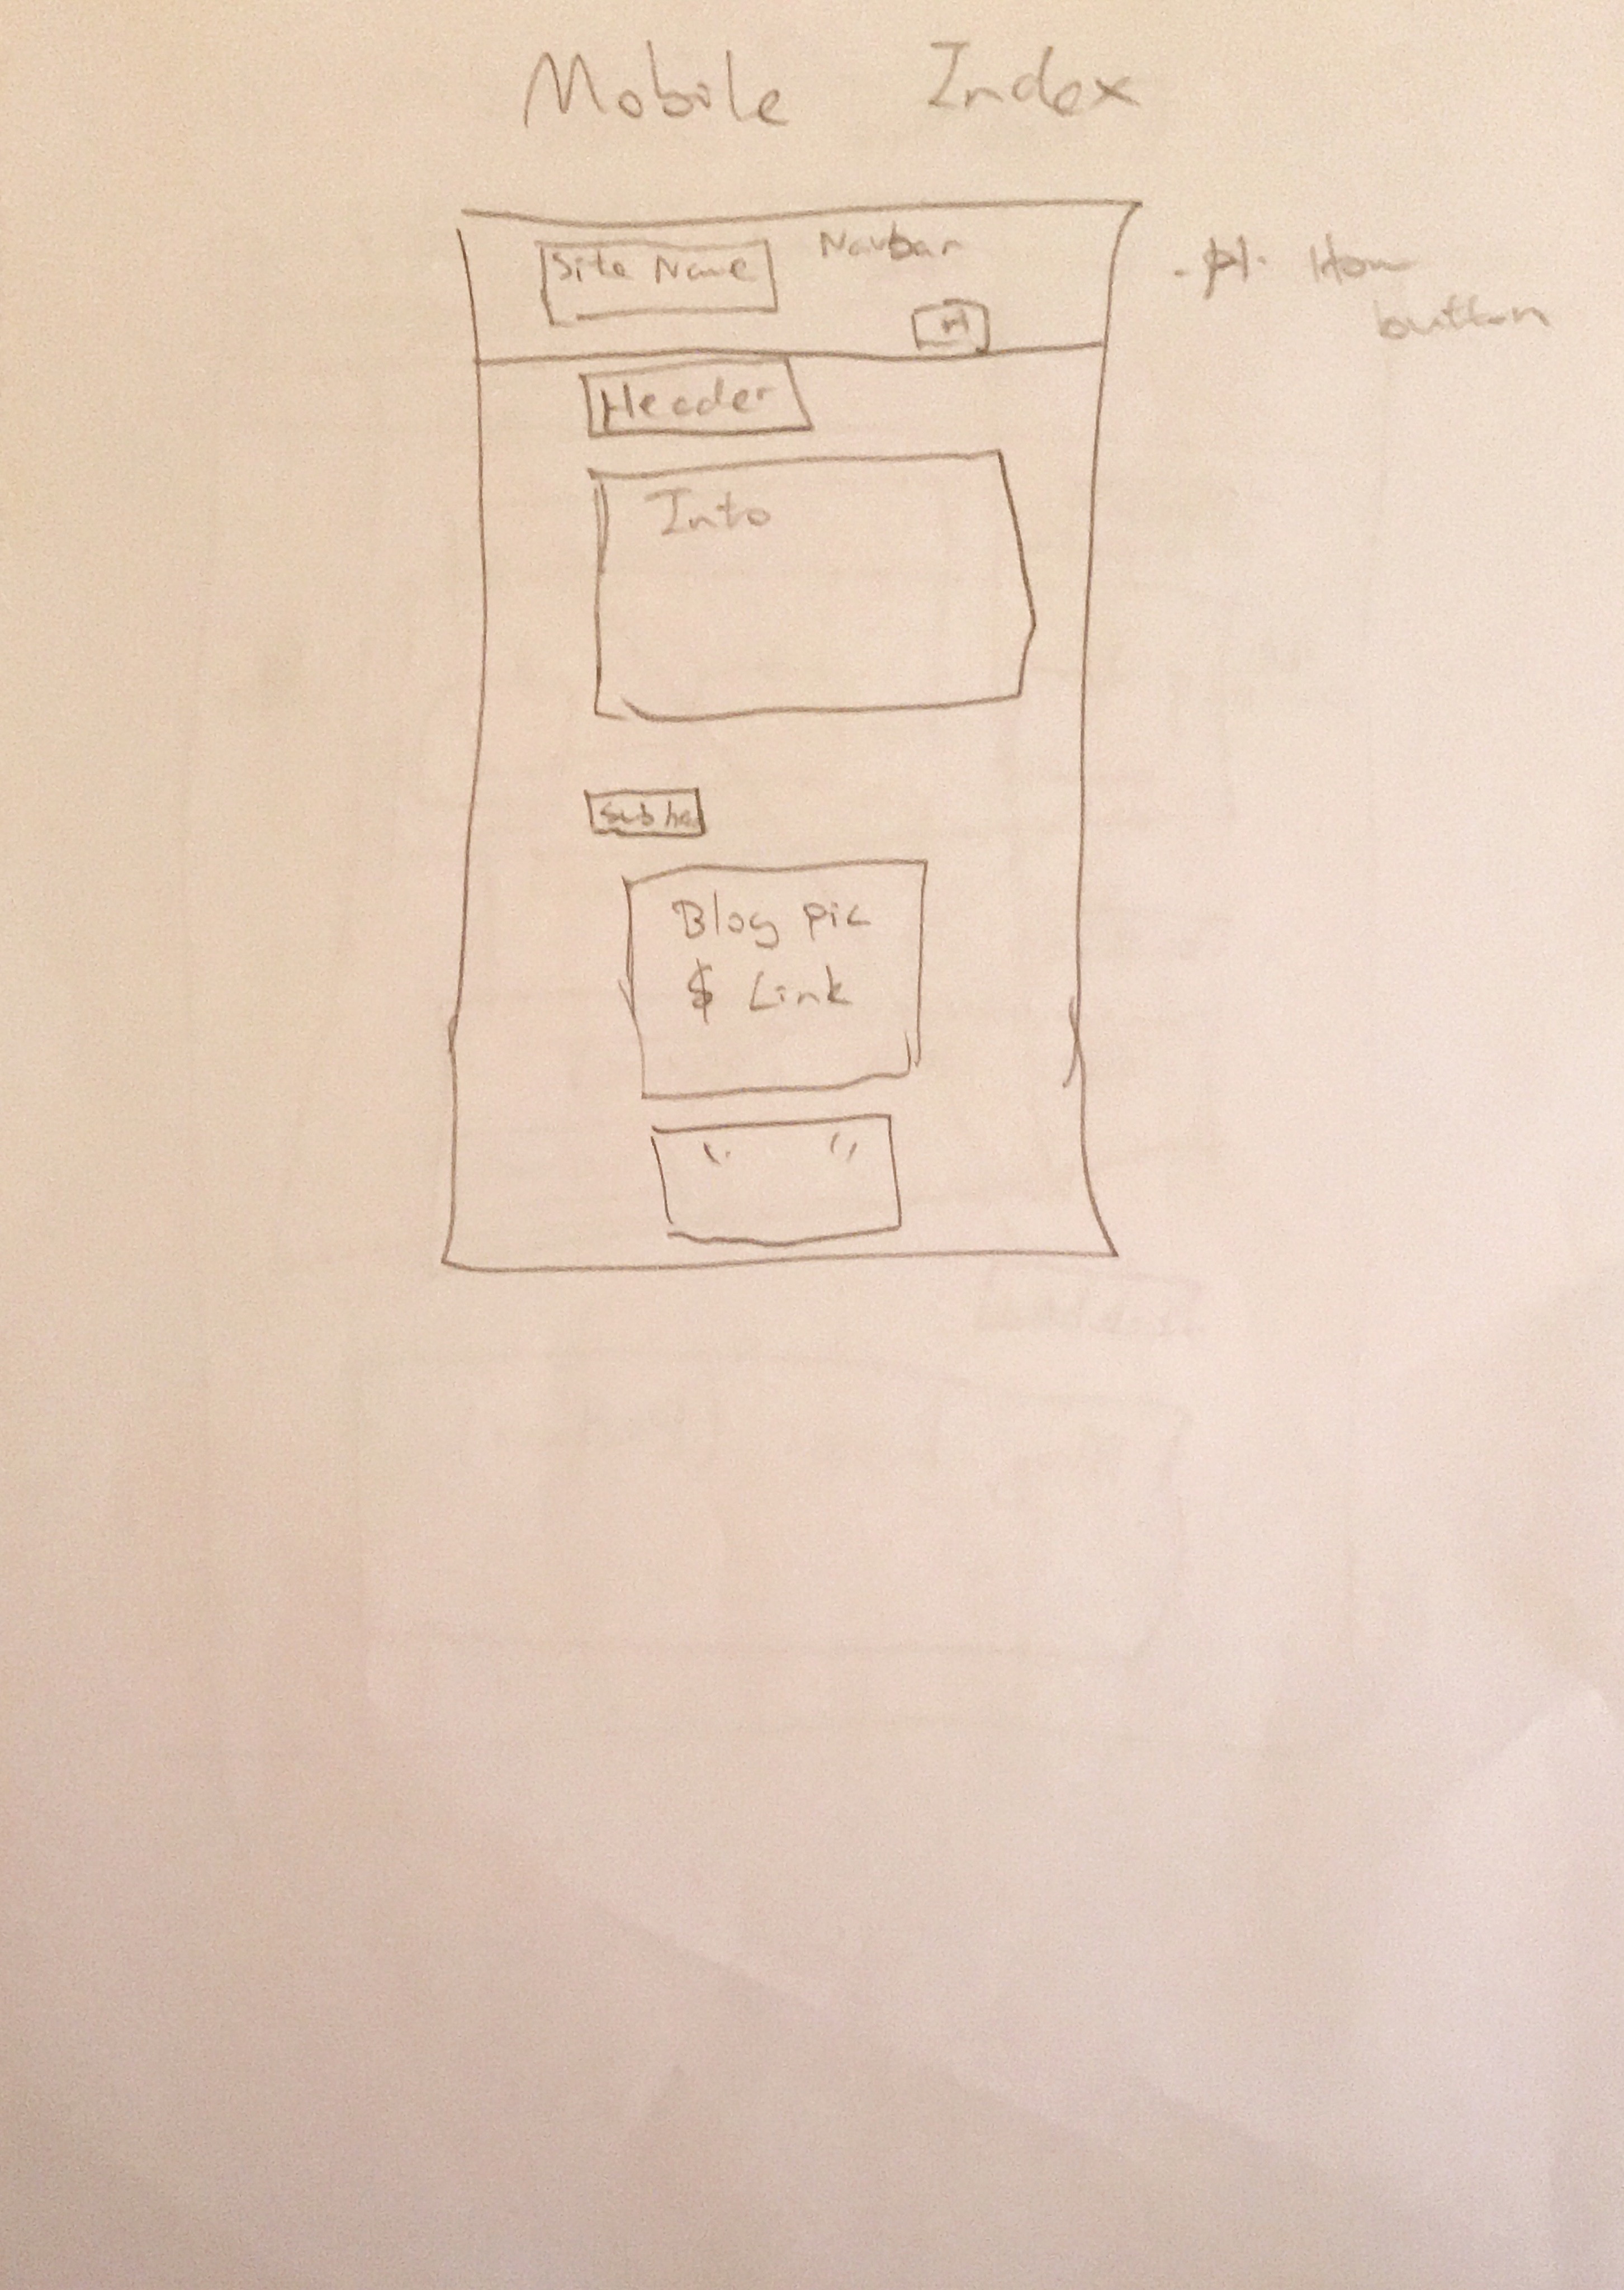 Mobile Index
Site Name
Navbar
H
- H. Hom
button
Header
Into
Subhe
Blog pic
$ Link
" "